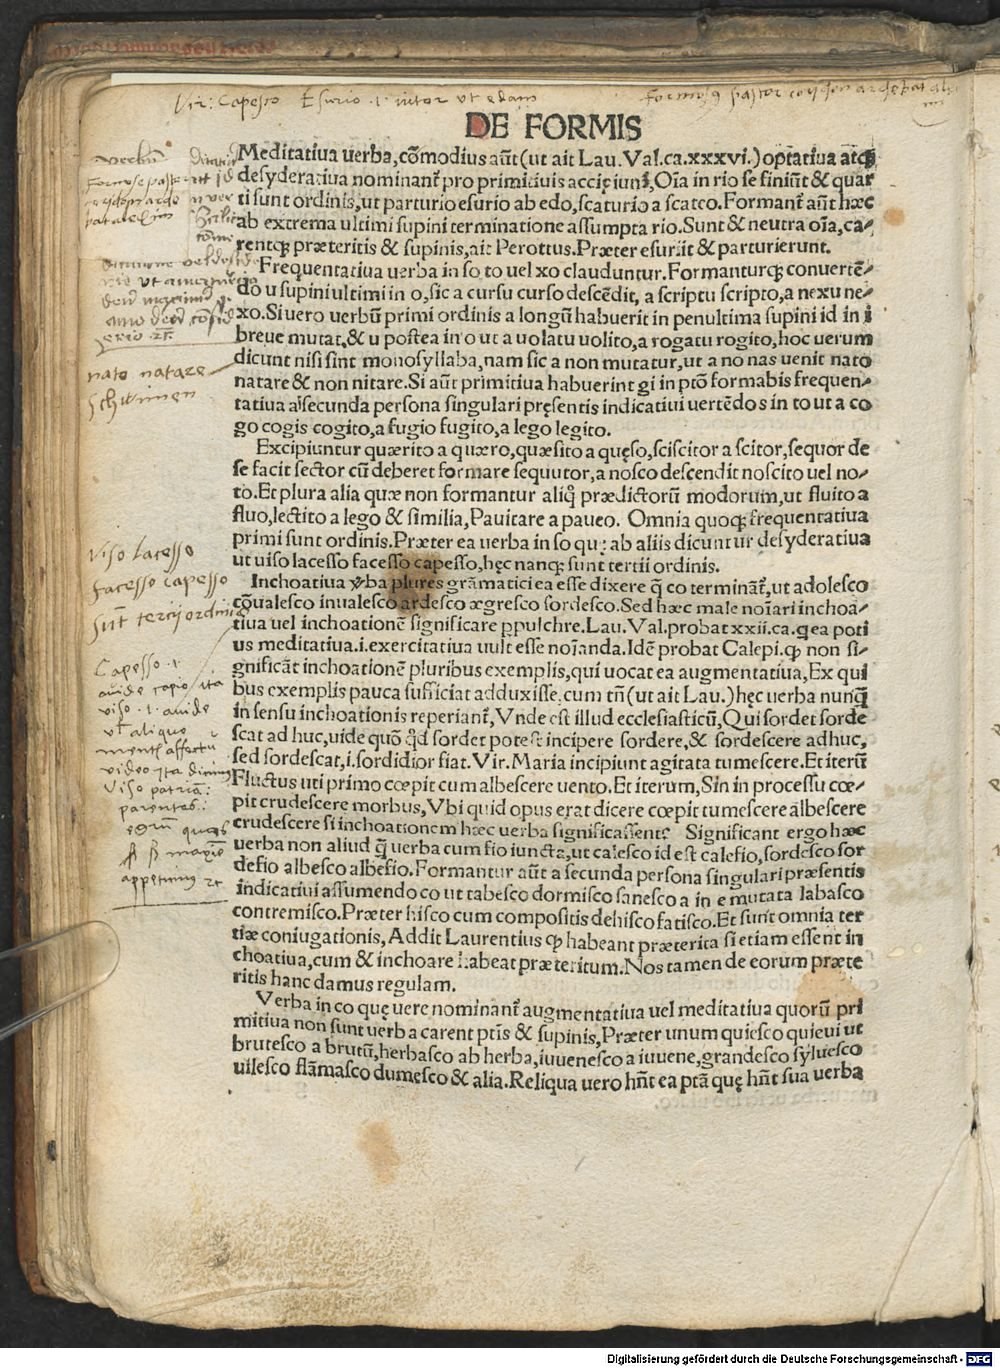 Vir: Capesso Esurio .i. nitor ut edam
DE FORMIS
Meditatiua uerba, cōmodius aūt (ut ait Lau. Val. ca. xxxvi.) optatiua atq;
desyderatiua nominant᷑ pro primitiuis accipiunt᷑, Oīa in rio se finiūt & quar
ti sunt ordinis, ut parturio esurio ab edo, scaturio a scateo. Formant᷑ aūt hæc
ab extrema ultimi supini terminatione assumpta rio. Sunt & neutra oīa, ca-
rentq; præteritis & supinis, ait Perottus. Præter esuriit & parturierunt.
Frequentatiua uerba in so to uel xo clauduntur. Formanturq; conuertē-
do u supini ultimi in o, sic a cursu curso descēdit, a scriptu scripto, a nexu ne-
xo. Si uero uerbū primi ordinis a longū habuerit in penultima supini id in i
breue mutat, & u postea in o ut a uolatu uolito, a rogatu rogito, hoc uerum
dicunt nisi sint monosyllaba, nam sic a non mutatur, ut a no nas uenit nato
natare & non nitare. Si aūt primitiua habuerint gi in ptō formabis frequen-
tatiua a secunda persona singulari pręsentis indicatiui uertēdo s in to ut a co
go cogis cogito, a fugio fugito, a lego legito.
Excipiuntur quærito a quæro, quæsito a quęso, sciscitor a scitor, sequor de
se facit sector cū deberet formare sequutor, a nosco descendit noscito uel no-
to. Et plura alia quæ non formantur aliq̄ prædictorū modorum, ut fluito a
fluo, lectito a lego & similia, Pauitare a paueo. Omnia quoq; frequentatiua
primi sunt ordinis. Præter ea uerba in so quę ab aliis dicuntur desyderatiua
ut uiso lacesso facesso capesso, hęc nanq; sunt tertii ordinis.
Inchoatiua v̄ba plures grāmatici ea esse dixere q̄ co termināt᷑, ut adolesco
cōualesco inualesco ardesco ægresco sordesco. Sed hæc male noīari inchoa-
tiua uel inchoationē significare ꝑpulchre. Lau. Val. probat xxii. ca. q ea poti
us meditatiua .i. exercitatiua uult esse noīanda. Idē probat Calepi. ꝙ non si-
gnificāt inchoationē pluribus exemplis, qui uocat ea augmentatiua, Ex qui
bus exemplis pauca sufficiat adduxisse, cum tn̄ (ut ait Lau.) hęc uerba nunq̄
in sensu inchoationis reperiant᷑, Vnde est illud ecclesiasticū, Qui sordet sorde
scat ad huc, uide quō qd sordet potest incipere sordere, & sordescere adhuc,
sed sordescat, i. sordidior fiat. Vir. Maria incipiunt agitata tumescere. Et iterū
Fluctus uti primo cœpit cum albescere uento. Et iterum, Sin in processu cœ-
pit crudescere morbus, Vbi quid opus erat dicere cœpit tumescere albescere
crudescere si inchoationem hæc uerba significassent? Significant ergo hæc
uerba non aliud q̄ uerba cum fio iuncta, ut calesco id est calefio, sordesco sor
defio albesco albefio. Formantur aūt a secunda persona singulari præsentis
indicatiui assumendo co ut tabesco dormisco sanesco a in e mutata labasco
contremisco. Præter hisco cum compositis dehisco fatisco. Et sunt omnia ter
tiæ coniugationis, Addit Laurentius ꝙ habeant præterita si etiam essent in
choatiua, cum & inchoare habeat præteritum. Nos tamen de eorum præte
ritis hanc damus regulam.
Verba in co quę uere nominant᷑ augmentatiua uel meditatiua quorū pri
mitiua non sunt uerba carent ptīs & supinis, Præter unum quiesco quieui ut
brutesco a brutū, herbasco ab herba, iuuenesco a iuuene, grandesco syluesco
uilesco flāmasco dumesco & alia. Reliqua uero hn̄t ea ptā quę hn̄t sua uerba
nato natare
Schwimen
Viso lacesso
facesso capesso
sūt tercij ordinis
Capesso .i.
auide capio ita
viso .i. auide
video ita dicimus
Viso patriā:
parentes:
appetimus
Digitalisierung gefördert durch die Deutsche Forschungsgemeinschaft - DFG